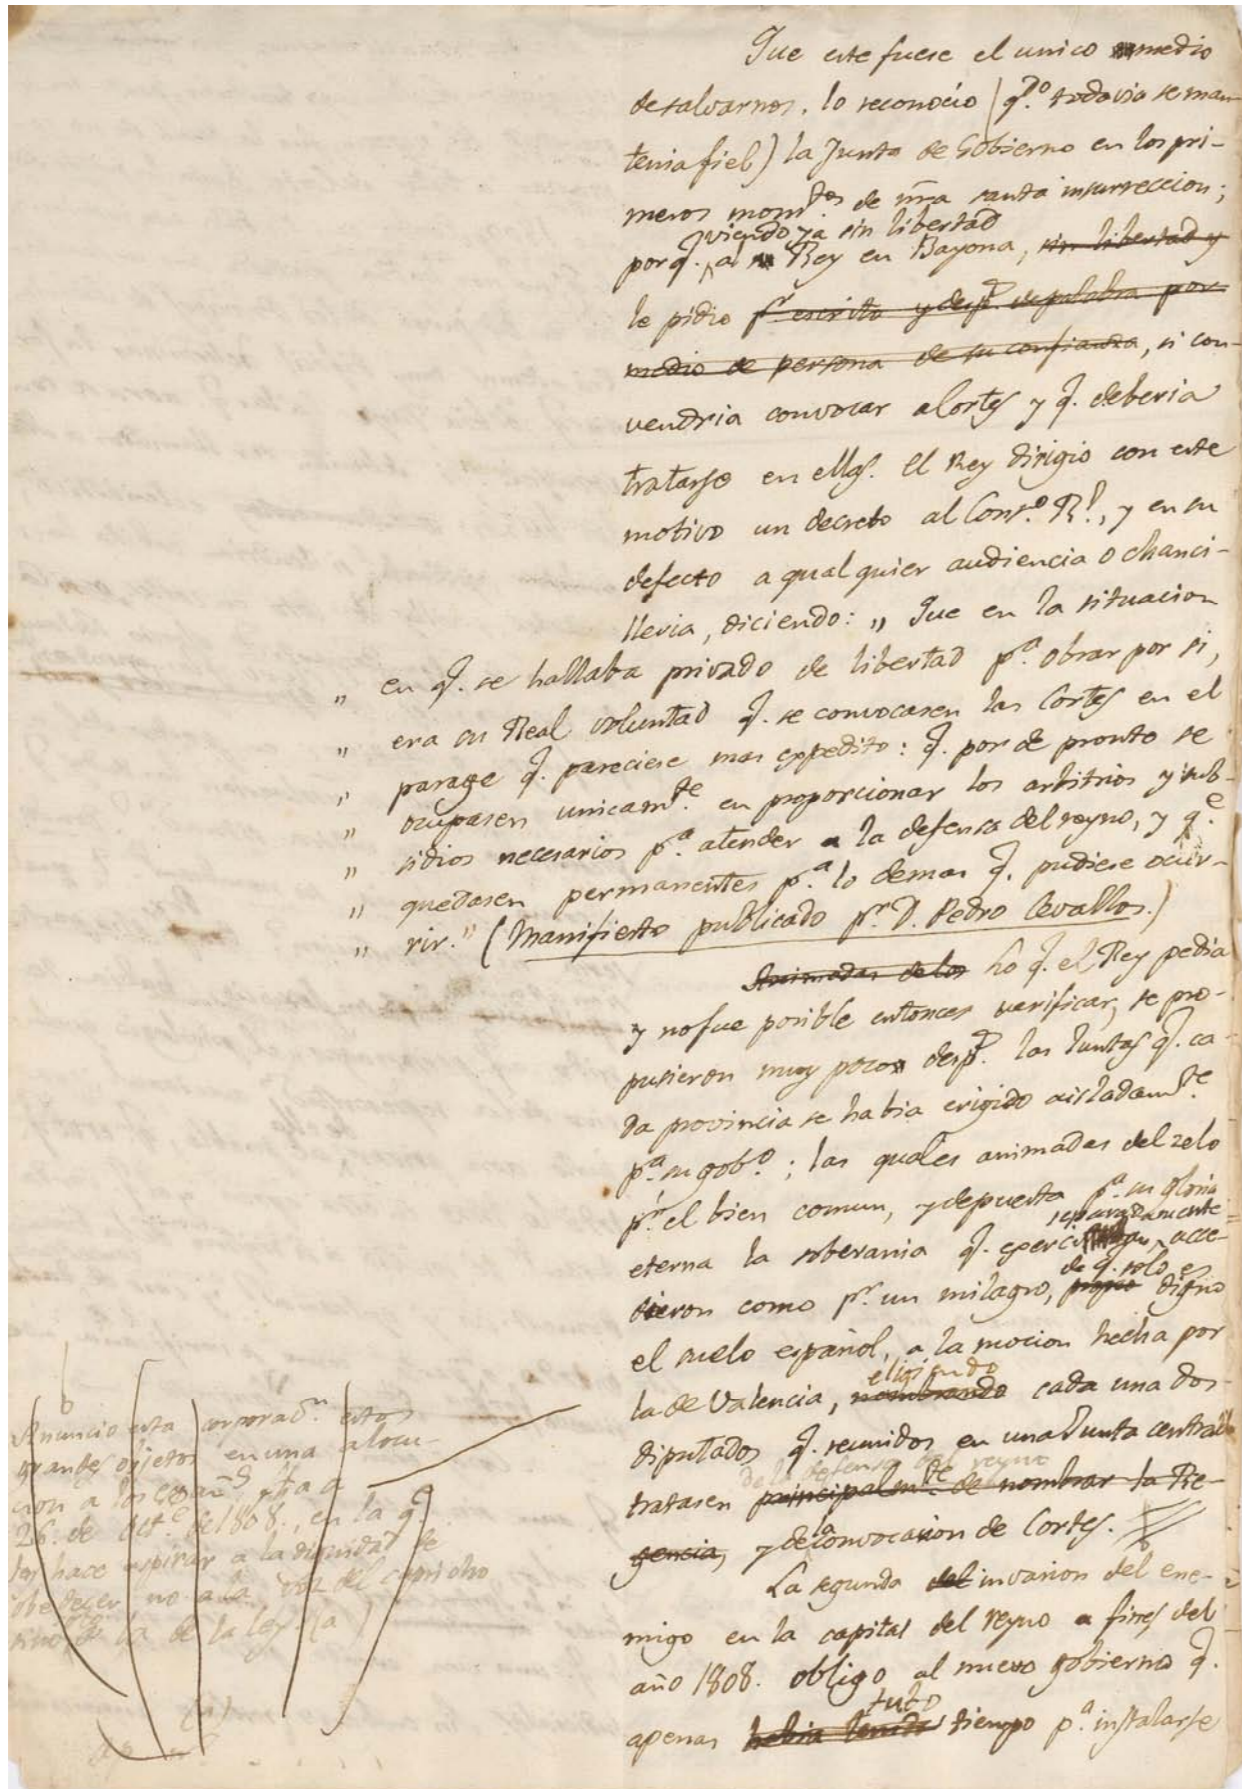 Que este fuese el unico medio
de salvarnos, lo reconocio (q.do todavia se man
tenia fiel) la Junta de Gobierno en los pri-
meros mom.tos de nra santa insurreccion;
viendo ya sin libertad
porq. al Rey en Bayona, sin libertad y
le pidio pr escrito y desp. de palabra por
medio de persona de su confianza, si con-
vendria convocar a Cortes y q. deberia
tratarse en ellas. El Rey dirigio con este
motivo un decreto al Cons.o R.l, y en su
defecto a qualquier audiencia o chanci-
lleria, diciendo: „ Que en la situacion
„ en q. se hallaba privado de libertad p.a obrar por si,
„ era su Real voluntad q. se convocasen las Cortes en el
„ parage q. pareciese mas expedito: q. por de pronto se
„ ocupasen unicam.te en proporcionar los arbitrios y sub-
„ sidios necesarios p.a atender a la defensa del reyno, y q.e
„ quedasen permanentes p.a lo demas q. pudiese ocur-
„ rir." (Manifiesto publicado pr. D. Pedro Cevallos.)
Animadas de los Lo q. el Rey pedia
y no fue posible entonces verificar, se pro-
pusieron muy poco desp. las Juntas q. ca-
da provincia se habia erigido aisladam.te
p.a su gob.o; las quales animadas del zelo
pr. el bien comun, y depuesta p.a su gloria
separadamente
eterna la soberania q. exercian, acce-
de q. solo es
dieron como pr. un milagro, propio digno
el suelo español, a la mocion hecha por
eligiendo
la de Valencia, nombrando cada una dos
diputados q. reunidos en una Junta central
de la defensa del reyno
tratasen principalm.te de nombrar la Re-
gencia, y de la convocacion de Cortes.
La segunda del invasion del ene-
migo en la capital del reyno a fines del
año 1808. obligo al nuevo gobierno q.
tubo
apenas habia tenido tiempo p.a instalarse
Anuncio esta corporac.n estos
grandes objetos en una alocu-
cion a los españ.s
26. de Oct.e de 1808. en la q.
les hace aspirar a la dignidad de
obedecer no a la voz del capricho
sino a la de la ley. (a)
(a)